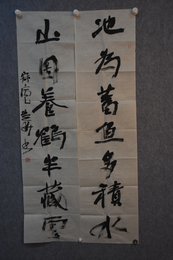 池為蓄魚多積水
山因養鶴半藏雲